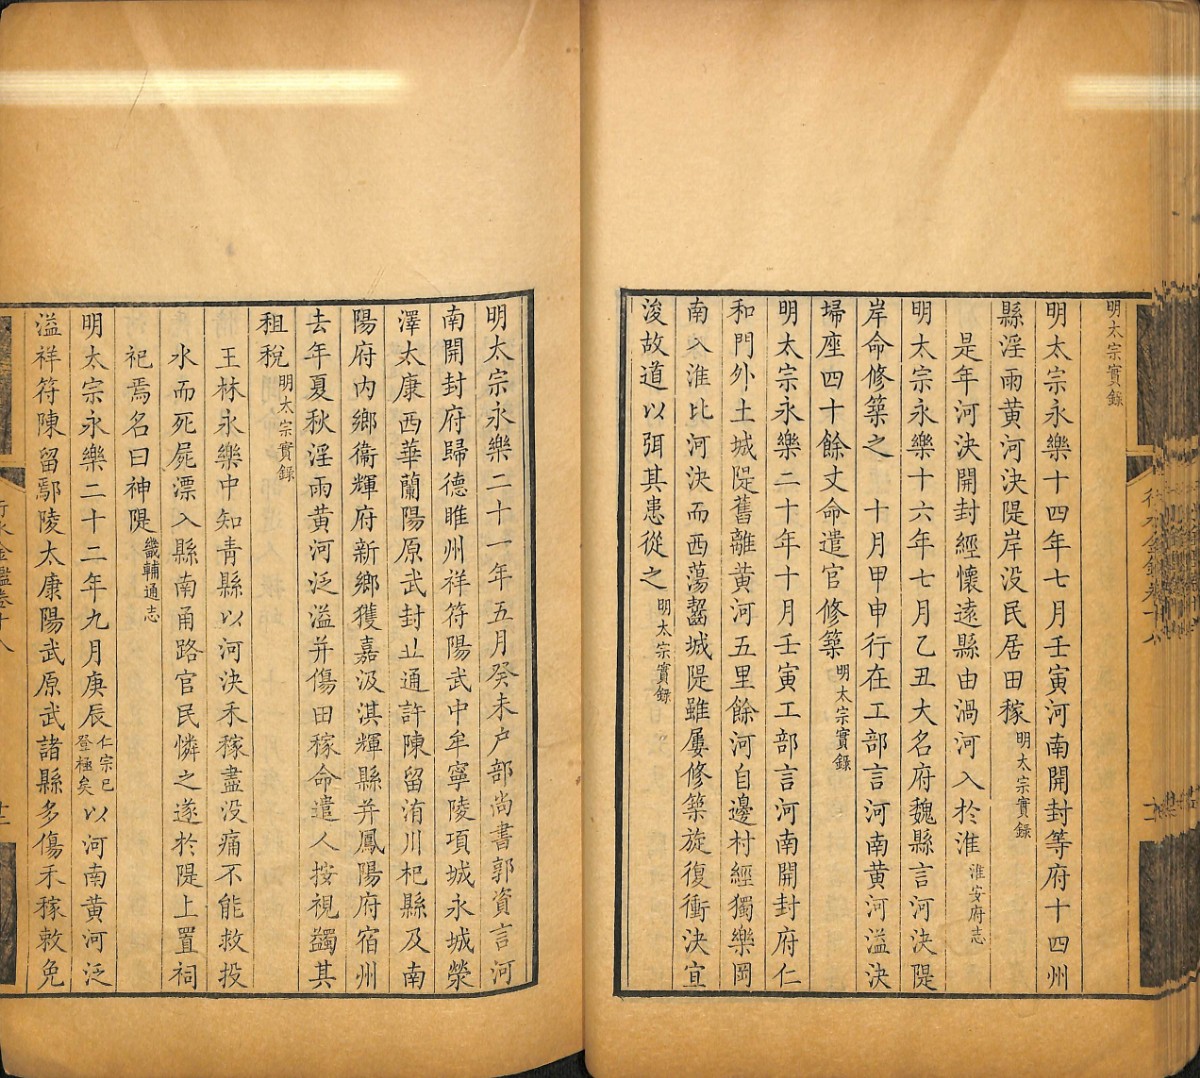 明太宗實錄
明太宗永樂十四年七月壬寅河南開封等府十四州
縣淫雨黃河決隄岸没民居田稼明太宗實錄
是年河決開封經懷遠縣由渦河入於淮淮安府志
明太宗永樂十六年七月乙丑大名府魏縣言河決隄
岸命修築之　十月甲申行在工部言河南黃河溢決
埽座四十餘丈命遣官修築明太宗實錄
明太宗永樂二十年十月壬寅工部言河南開封府仁
和門外土城隄舊離黃河五里餘河自邊村經獨樂岡
南入淮比河決而西蕩齧城隄雖屢修築旋復衝決宜
浚故道以弭其患從之明太宗實錄
行水金鑑卷十八
明太宗永樂二十一年五月癸未户部尚書郭資言河
南開封府歸德睢州祥符陽武中牟寧陵項城永城滎
澤太康西華蘭陽原武封丘通許陳留洧川杞縣及南
陽府内鄉衞輝府新鄉獲嘉汲淇輝縣并鳳陽府宿州
去年夏秋淫雨黃河泛溢并傷田稼命遣人按視蠲其
租稅明太宗實錄
王林永樂中知青縣以河決禾稼盡没痛不能救投
水而死屍漂入縣南甬路官民憐之遂於隄上置祠
祀焉名曰神隄畿輔通志
明太宗永樂二十二年九月庚辰仁宗已登極矣以河南黃河泛
溢祥符陳留鄢陵太康陽武原武諸縣多傷禾稼敕免
行水金鑑卷十八